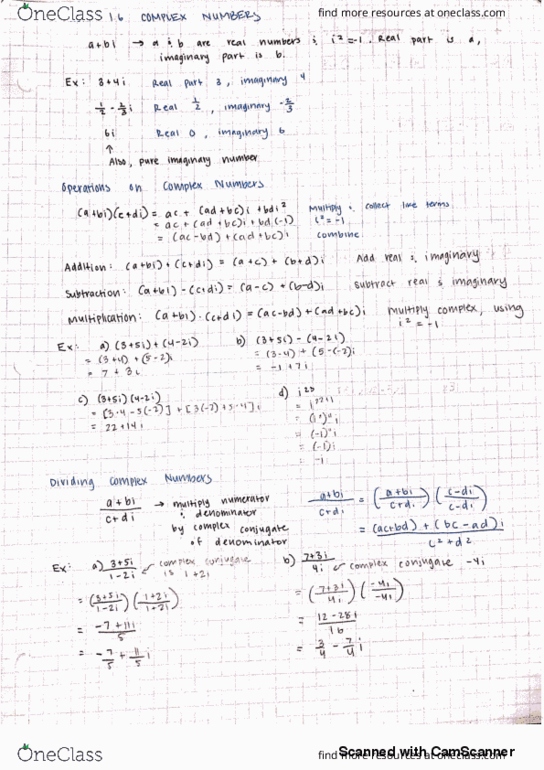 OneClass
find more resources at oneclass.com
1.6 COMPLEX NUMBERS
a+bi → a & b are real numbers & i²=-1. Real part is a,
imaginary part is b.
Ex: 3+4i Real part 3, imaginary 4
1/2 - 2/3 i Real 1/2, imaginary -2/3
6i Real 0, imaginary 6
↑
Also, pure imaginary number
Operations on Complex Numbers
(a+bi)(c+di) = ac + (ad+bc)i + bdi² Multiply & collect like terms
= ac + (ad+bc)i + bd(-1) i²=-1
= (ac-bd) + (ad+bc)i combine
Addition: (a+bi)+(c+di) = (a+c) + (b+d)i Add real & imaginary
Subtraction: (a+bi)-(c+di) = (a-c) + (b-d)i subtract real & imaginary
Multiplication: (a+bi)·(c+di) = (ac-bd)+(ad+bc)i multiply complex, using
i² = -1
Ex: a) (3+5i)+(4-2i) b) (3+5i) - (4-2i)
= (3+4) + (5-2)i = (3-4) + (5-(-2)i
= 7 + 3i = -1 + 7i
c) (3+5i)(4-2i) d)
= [3·4 - 5(-2)] + [3(-2)+5·4]i
= 22+14i
= (-1)i
= -i
Dividing Complex Numbers
a+bi/c+di → multiply numerator a+bi/c+di = (a+bi/c+di)(c-di/c-di)
& denominator
by complex conjugate = (ac+bd) + (bc-ad)i / c²+d²
of denominator
Ex: a) 3+5i/1-2i ↙ complex conjugate b) 7+3i/4i ↙ complex conjugate -4i
is 1+2i
= (3+5i/1-2i)(1+2i/1+2i) = (7+3i/4i)(-4i/-4i)
= -7+11i/5 = 12-28i/16
= -7/5 + 11/5 i = 3/4 - 7/4 i
OneClass
find more resources at oneclass.com
Scanned with CamScanner